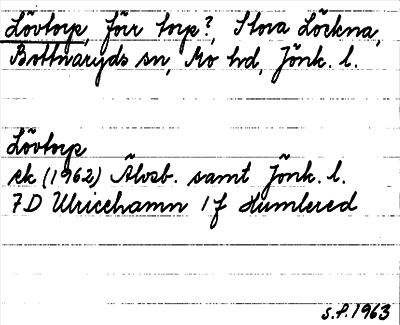 Lövtorp, förr torp?, Stora Lörkna,
Bottnaryds sn, Mo hd, Jönk. l.
Lövtorp
ek (1962) Älvsb. samt Jönk. l.
7D Ulricehamn 1f Humlered
S.P. 1963